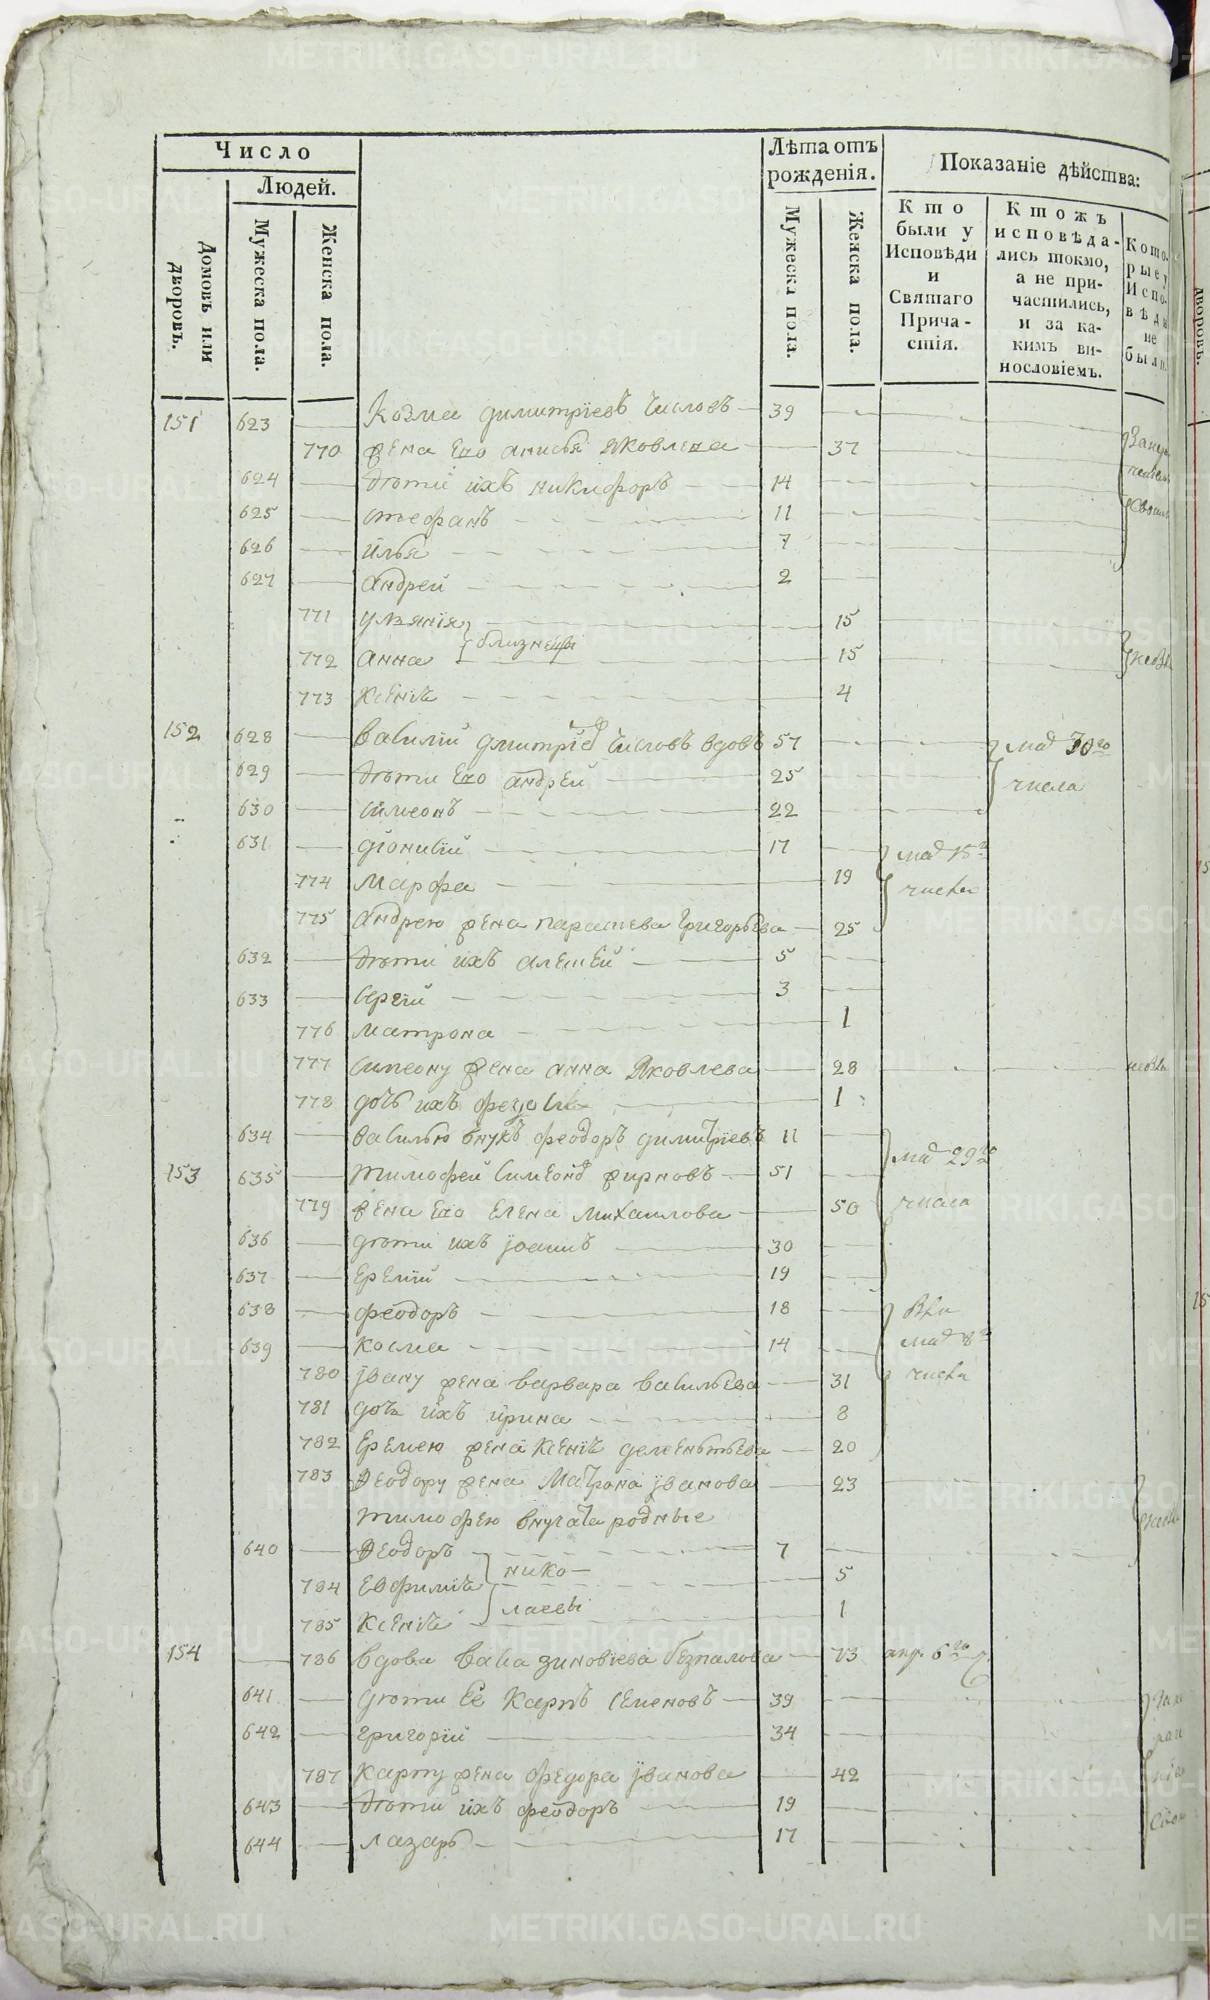 Число
Людей.
Домовъ или дворовъ.
Мужеска пола.
Женска пола.
Лѣта отъ рожденія.
Мужеска пола.
Женска пола.
Показаніе дѣйства:
Кто были у Исповѣди и Святаго Причастія.
Ктожъ исповѣдались токмо, а не причастились, и за какимъ винословіемъ.
Которые у Исповѣди не были.
151 623 Козма Димитріевъ Числовъ 39
770 жена его анисья Яковлева 37
624 дѣти ихъ никифоръ 14
625 стефанъ 11
626 илья 7
627 андрей 2
771 улянія 15
близнецы
772 анна 15
773 ксенія 4
152 628 василій дмитріевъ Числовъ вдовъ 57 маія 30го
629 дѣти его андрей 25 числа
630 симеонъ 22
631 діонисій 17 маія 15го
774 марфа 19 числа
775 андрею жена параскева григорьева 25
632 дѣти ихъ алексей 5
633 сергій 3
776 матрона 1
777 симеону жена анна Яковлева 28
778 дочь ихъ 1
634 василью внукъ феодоръ димитріевъ 11
153 635 тимофей Симеоновъ жирновъ 51 маія 29го
779 жена его елена михаилова 50 числа
636 дѣти ихъ іоаннъ 30
637 еремій 19
638 феодоръ 18
639 косма 14 маія 8го
780 івану жена варвара васильева 31 числа
781 дочь ихъ ирина 8
782 еремею жена ксенія дементьева 20
783 феодору жена матрона іванова 23
тимофею внучата родные
640 феодоръ 7
нико-
784 евфимія 5
лаевы
785 ксенія 1
154 786 вдова васа зиновіева безпалова 73 апр. 6го
641 дѣти ее карпъ семеновъ 39
642 григорій 34
787 карпу жена федора іванова 42
643 дѣти ихъ феодоръ 19
644 лазарь 17
METRIKI.GASO-URAL.RU